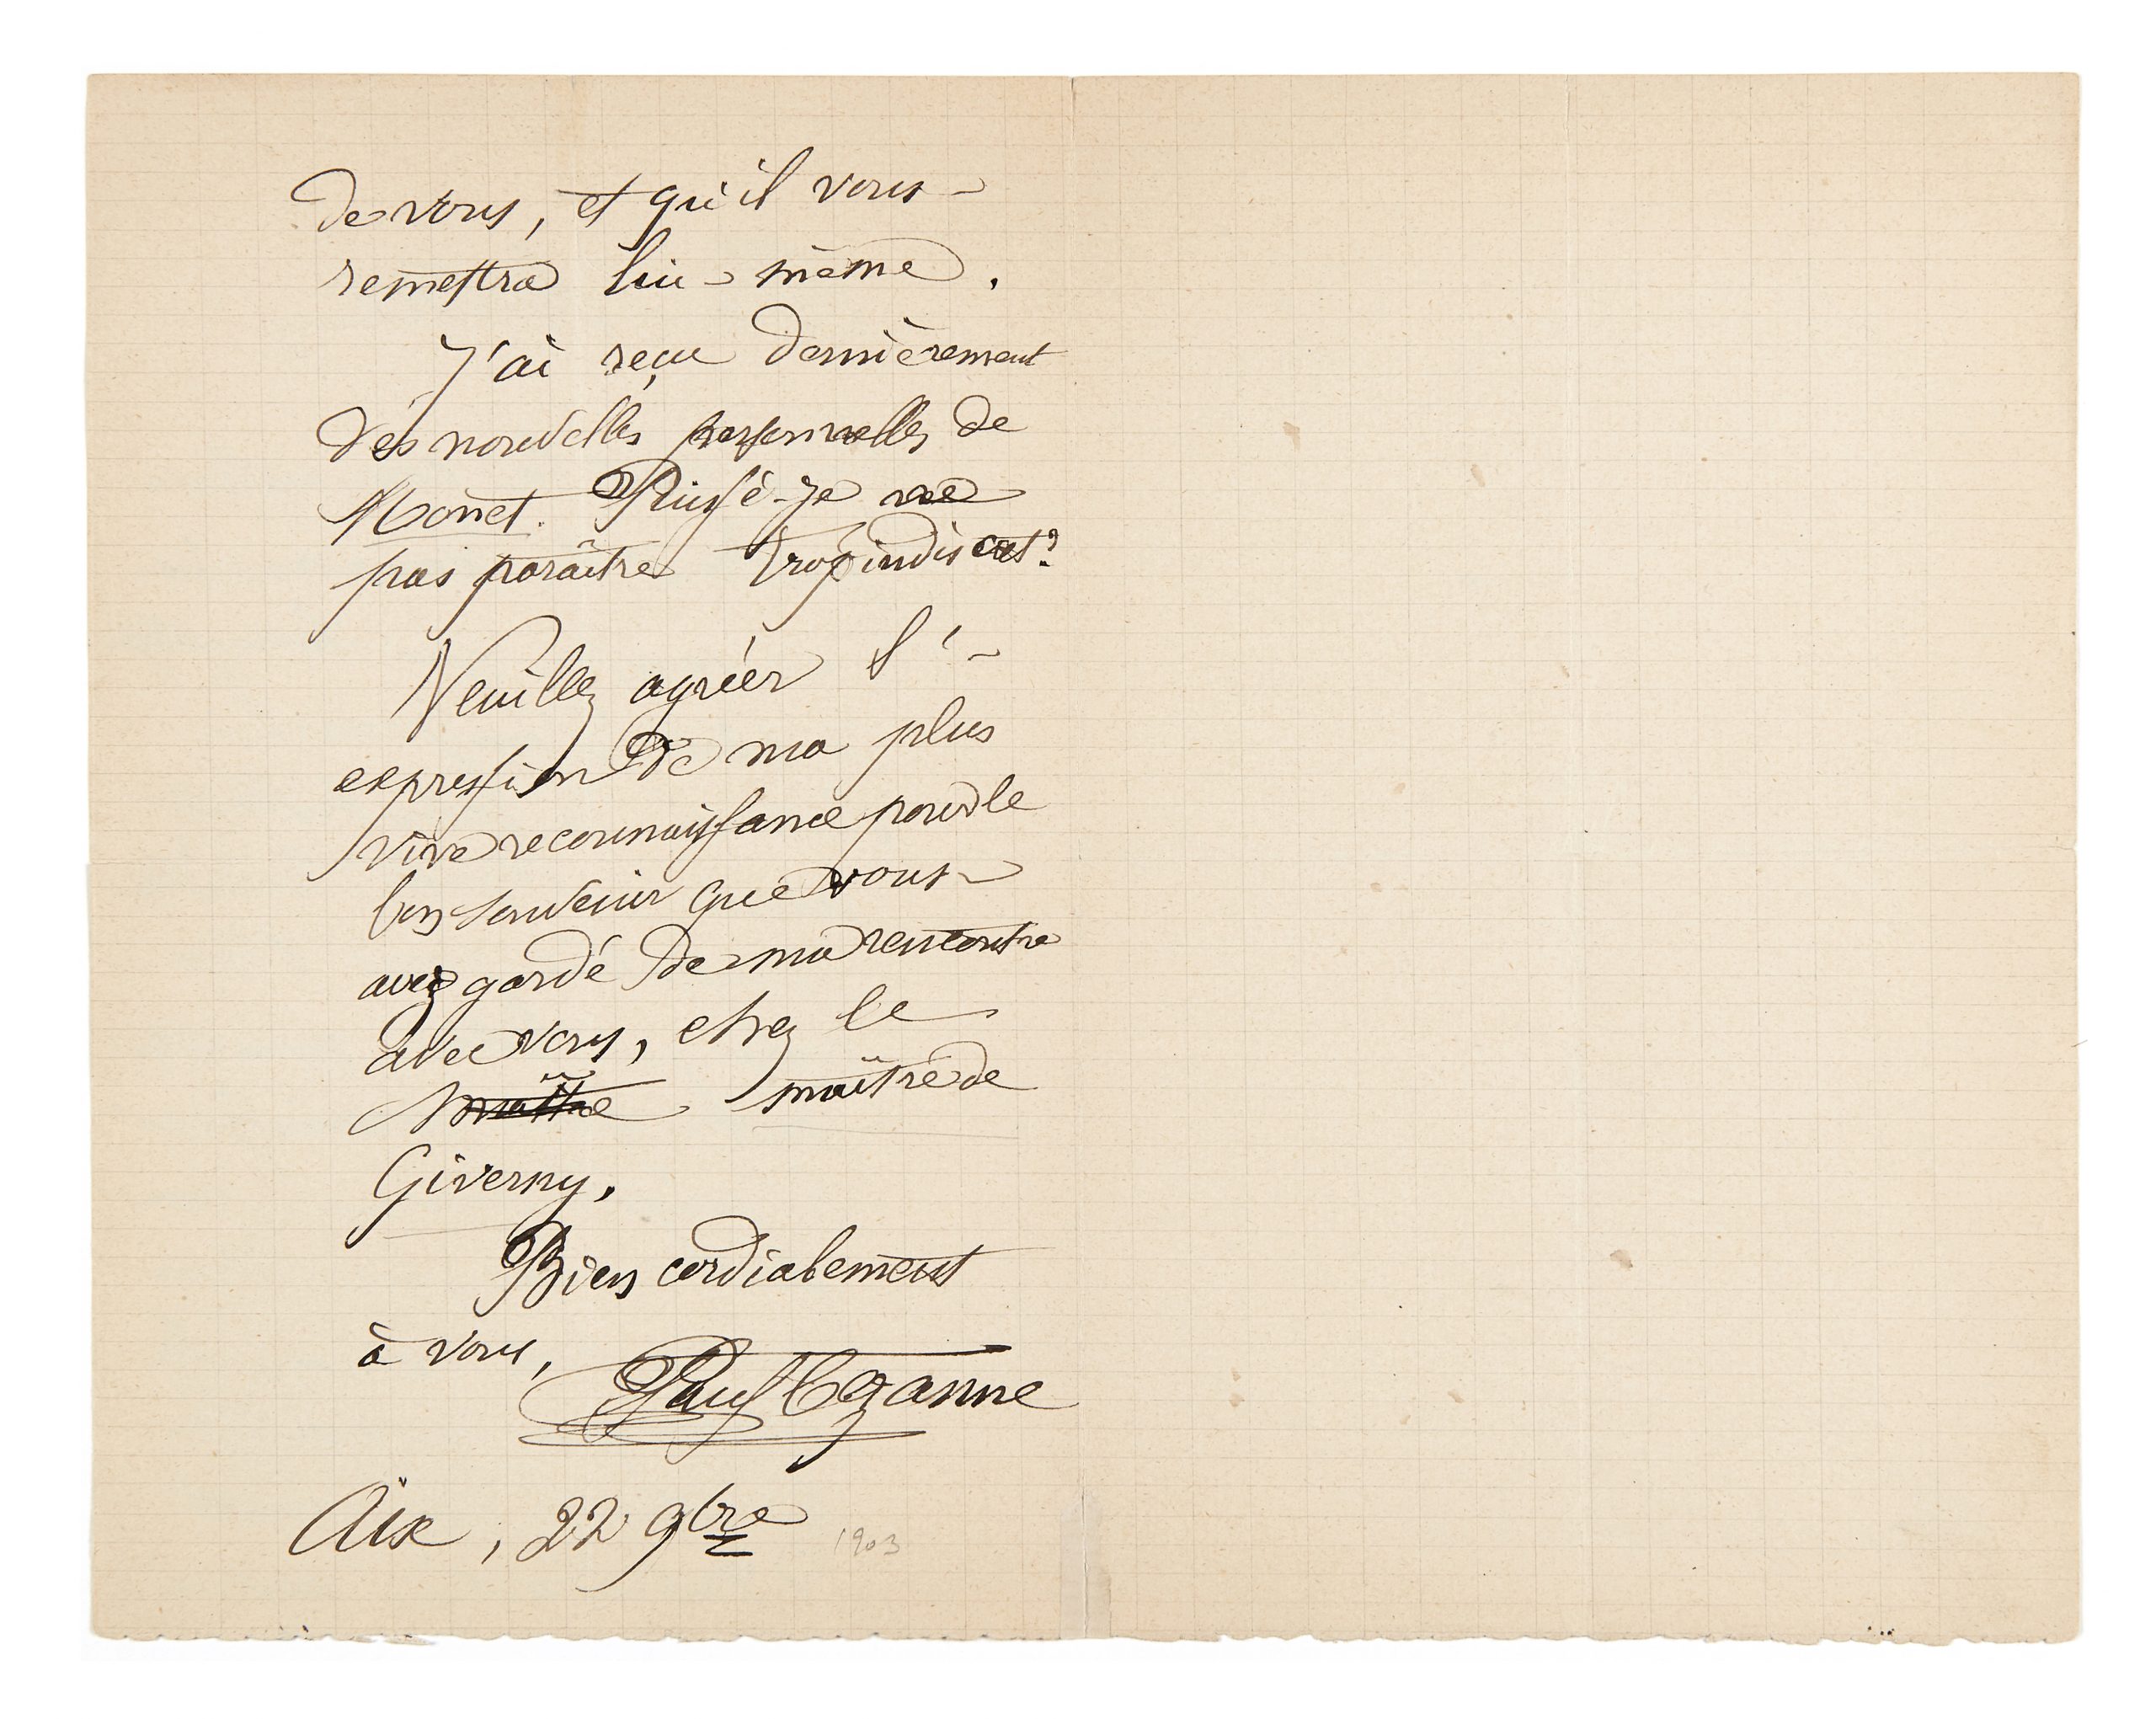 de vous, et qu'il vous
remettra lui-même.
J'ai reçu dernièrement
des nouvelles personnelles de
Monet. Puissé-je ne
pas paraître trop indiscret?
Veuillez agréer l'-
expression de ma plus
vive reconnaissance pour le
bon souvenir que vous
avez gardé de ma rencontre
avec vous, chez le
maître maître de
Giverny.
Bien cordialement
à vous,
Paul Cezanne
Aix, 22 9bre 1903